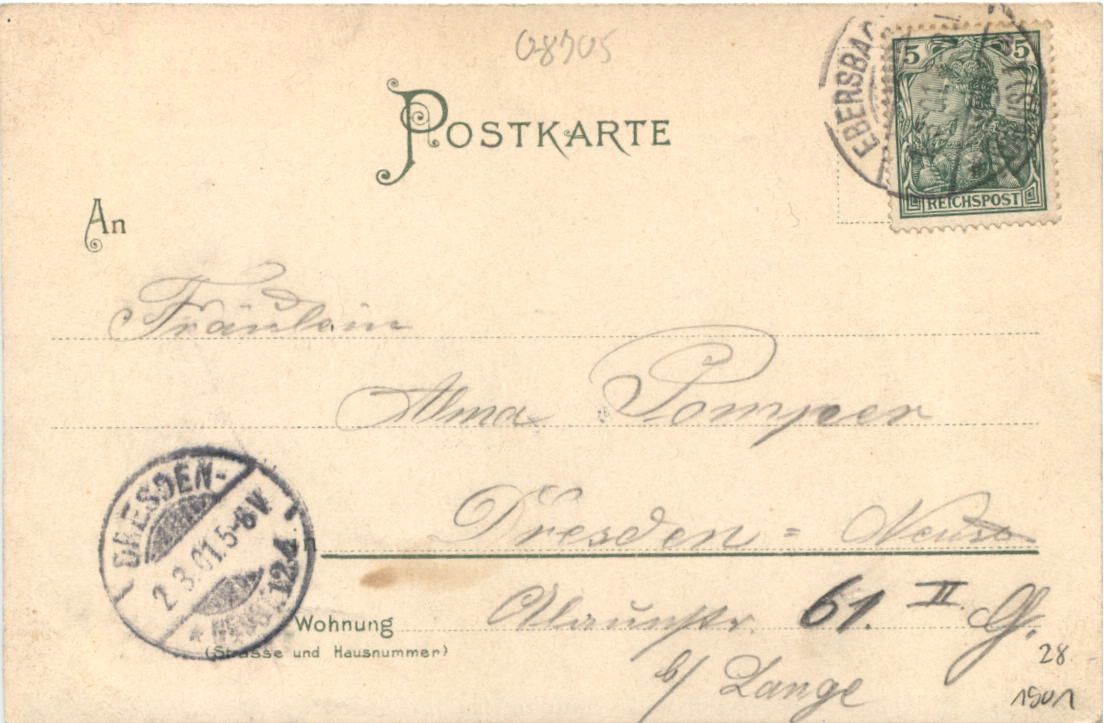 08705
POSTKARTE
EBERSBACH
5 5
REICHSPOST
An
Fräulein
Alma Pomper
Dresden = Neust
DRESDEN-
2.3.01.5-6V.
NEUST. 12.d
Wohnung
(Strasse und Hausnummer)
Alaunstr. 61. II. G.
b/ Lange
28
1901